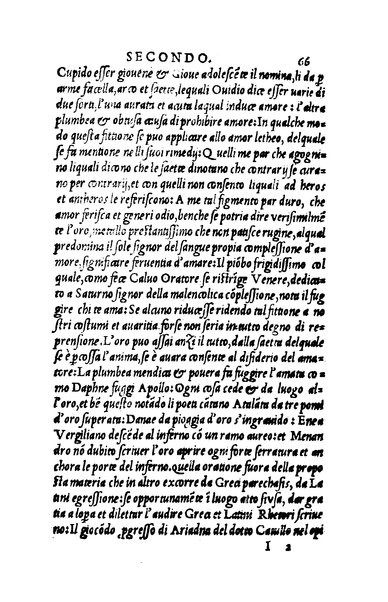 SECONDO. 66
Cupido esser giouene & Gioue adolescẽte il nomina, li da p
arme facella, arco et saette, lequali Ouidio dice esser uarie di
due sorti, l'una aurata et acuta laqual induce amore: l'altra
plumbea & obtusa causa di prohibire amore: In qualche mo
do questa fittione se puo applicare allo amor letheo, delquale
se fa mentione nelli suoi rimedy: Quelli me par che agogni-
no liquali dicono che le saette dinotano che contrary se cura-
no per contrary, et con quelli non consento liquali ad heros
et antheros le referiscono: A me tal figmento par duro, che
amor ferisca et generi odio, benche se potria dire uerisimilmẽ
te l'oro, metallo prestantissimo che non patisce rugine, alqual
predomina il sole signor del sangue propia complessione d'a-
more, significare feruentia d'amare: Il piõbo frigidissimo col
quale, como fece Caluo Oratore se ristrĩge Venere, dedica-
to a Saturno signor della malencolica cõplessione, nota il fug
gire chi te ama: Se alcuno riducesse ridendo tal fittione a no
stri costumi et auaritia forse non seria in tutto degno di re-
prensione. L'oro puo assai anzi il tutto, dalla saetta delquale
se è pcossa l'anima, se è auara consente al disiderio del ama-
tore: La plumbea mendica & pouera fa fuggire l'amata co-
mo Daphne fuggi Apollo: Ogni cosa cede & da luogo al-
l'oro, et bẽ questo notãdo li poeti cãtano Atalãta da tre pomi
d'oro superata: Danae da pioggia d'oro s'ingrauido: Enea
Vergiliano descẽde al inferno cõ un ramo aureo: et Menan
dro nõ dubito scriuer l'oro aprire ogni forte serratura et an
chora le porte del inferno. quella oratione fuora della propo
sta materia che in altro excorre da Greci parechasis, da La
tini egressione: se opportunamẽte ĩ luogo atto si usa, dar gra
tia a lopa et dilettar l'audire Greci et Latini Rhetori scriue
no: Il giocõdo pgresso di Ariadna del dotto Catullo nel opi
I 2